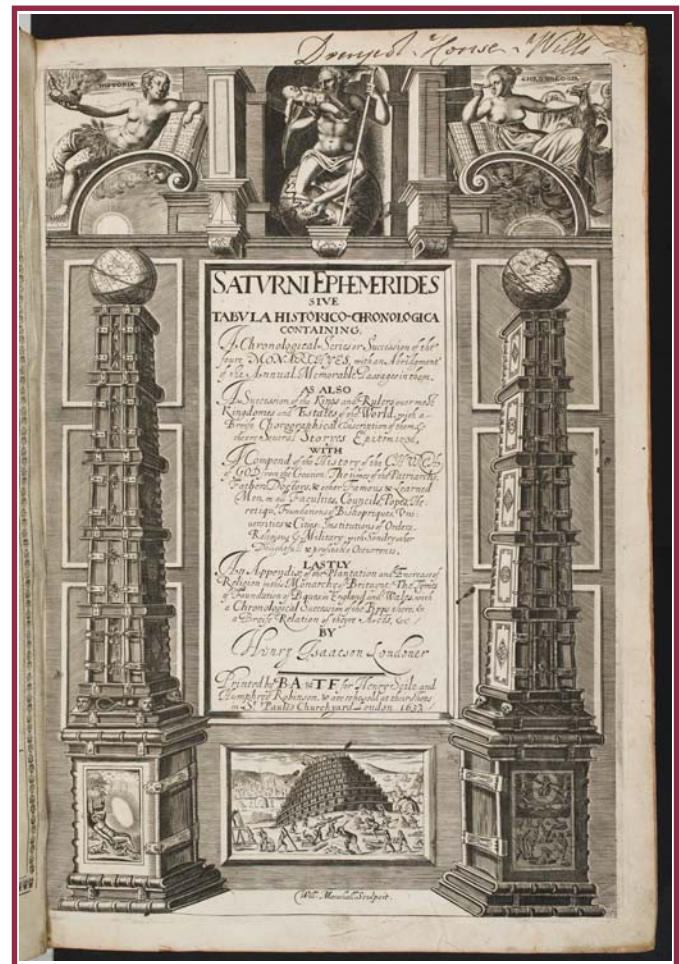 House Wilts
HISTORIA
CHRONOLOGIA
SATVRNI EPHEMERIDES
SIVE
TABVLA HISTORICO-CHRONOLOGICA
CONTAINING,
A Chronological Series or Succession of the
foure MONARCHYES, with an Abridgment
of the Annual Memorable Passages in them.
AS ALSO
A Succession of the Kings and Rulers over most
Kingdomes and Estates of the World, with a
Breife Chorographical Discription of them, &
theyre Several Storyes Epitomized,
WITH
A Compend of the History of the CHVRCH
of GOD from the Creation: The times of the Patriarchs,
Fathers, Doctors, & other Famous & Learned
Men, in all Faculties, Councils, Popes, He-
retiqu, Foundations of Bishopriques, Vni-
uersities & Cities: Institutions of Orders
Religious & Military, with Sondry other
Delightfull & profitable Occurrences.
LASTLY
An Appendix of the Plantation and Encrease of
Religion in the Monarchy of Britayne The Tymes
of Foundation of in England and Wales, with
a Chronological Succession of the there, &
a Breife Relation of theyre Actes, &c
BY
Henry Isaacson Londoner
Printed by B·A & T F for Henry Seile and
Humphry Robinson, & are to be sold at their shops
in St. Paules Churchyard London 1633
Will: Marshall. Sculpsit.